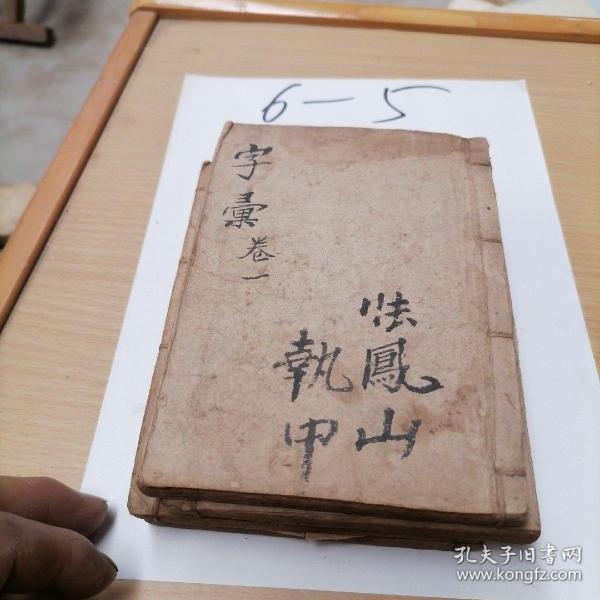 6-5
字彙卷一
法鳳山
執中
孔夫子旧书网
www.kongfz.com